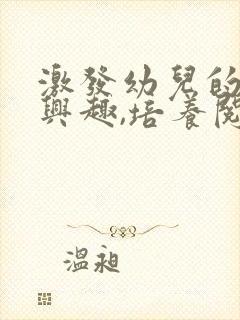 激發幼兒的
興趣,培養閱
溫昶